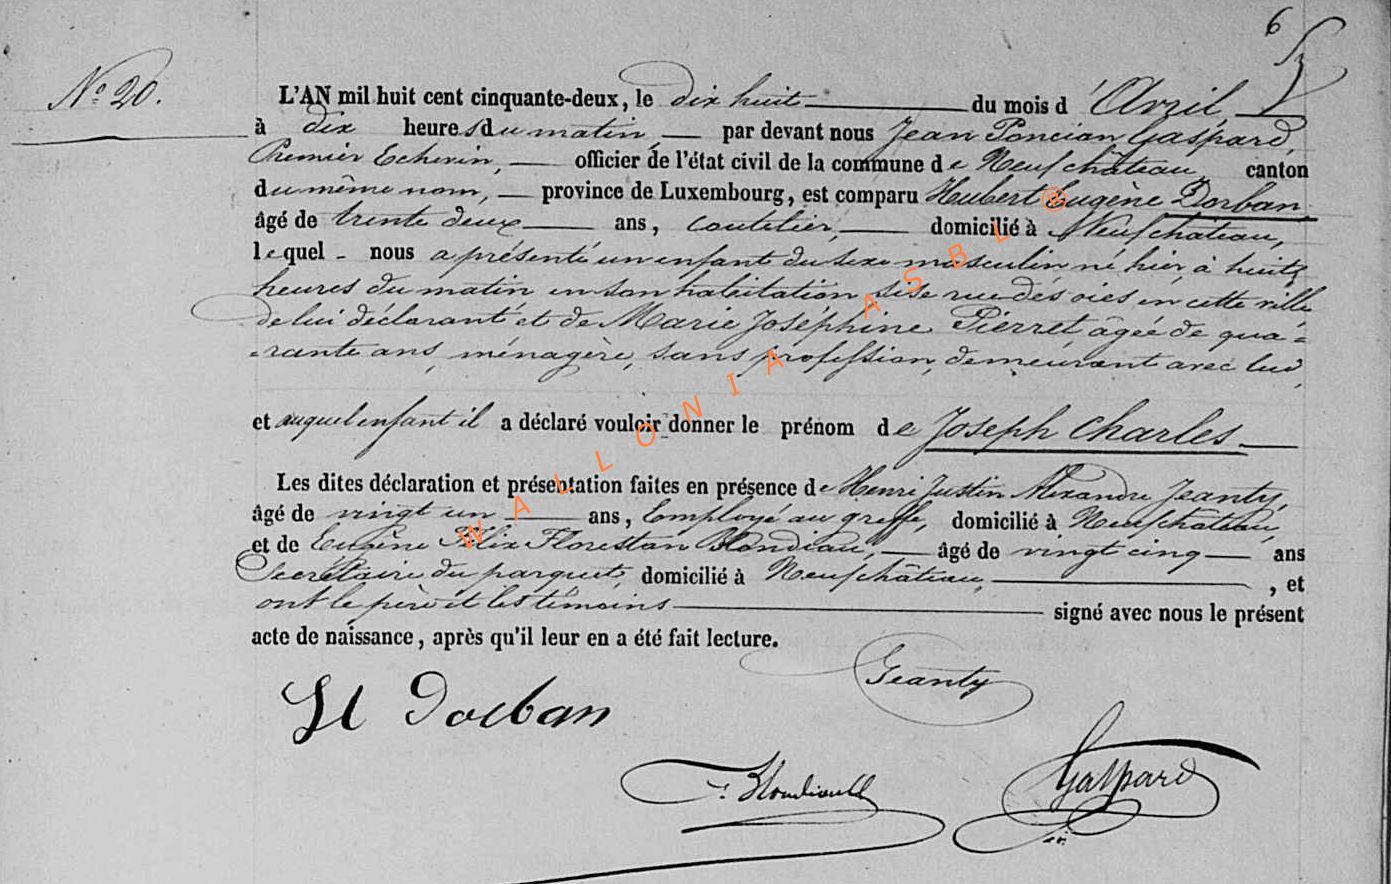 6
N° 20.
L'AN mil huit cent cinquante-deux, le dix huit du mois d'Avril,
à dix heures du matin, par devant nous Jean Poncian Gaspard,
Premier Echevin, officier de l'état civil de la commune de Neufchâteau, canton
du même nom, province de Luxembourg, est comparu Hubert Eugène Dorban
âgé de trente deux ans, coutelier, domicilié à Neufchateau,
lequel nous a présenté un enfant du sexe masculin né hier, à huit
heures du matin en son habitation, sise rue des oies en cette ville
de lui déclarant et de Marie Joséphine Pierret, âgée de qua=
=rante ans, ménagère, sans profession, demeurant avec lui,
et auquel enfant il a déclaré vouloir donner le prénom de Joseph Charles
Les dites déclaration et présentation faites en présence de Henri Justin Alexandre Jeanty,
âgé de vingt un ans, Employé au greffe, domicilié à Neufchâteau,
et de Eugène Félix Florestan Blondiau, âgé de vingt cinq ans
Secrétaire du parquet, domicilié à Neufchâteau, , et
ont le père et les témoins signé avec nous le présent
acte de naissance, après qu'il leur en a été fait lecture.
Jeanty
H Dorban
Gaspard
WALLONIA ASBL ®